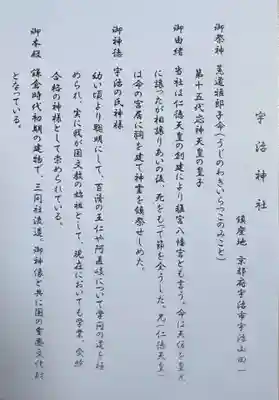 宇治神社
鎮座地 京都府宇治市宇治山田一
御祭神 菟道稚郎子命(うじのわきいらつこのみこと)
第十五代応神天皇の皇子
御由緒 当社は仁徳天皇の創建により離宮八幡宮とも言う。命は天位を皇兄
に譲ったが相譲りあいの後、死をもって節を全うした。兄(仁徳天皇)
は命の宮居に祠を建て神霊を鎮祭せしめた。
御神徳 宇治の氏神様
幼い頃より聡明にして、百済の王仁や阿直岐について学問の道を極
められ、実に我が国文教の始祖として、現在においても学業、受験
合格の神様として崇められている。
御本殿 鎌倉時代初期の建物で、三間社流造。御神像と共に国の重要文化財
となっている。